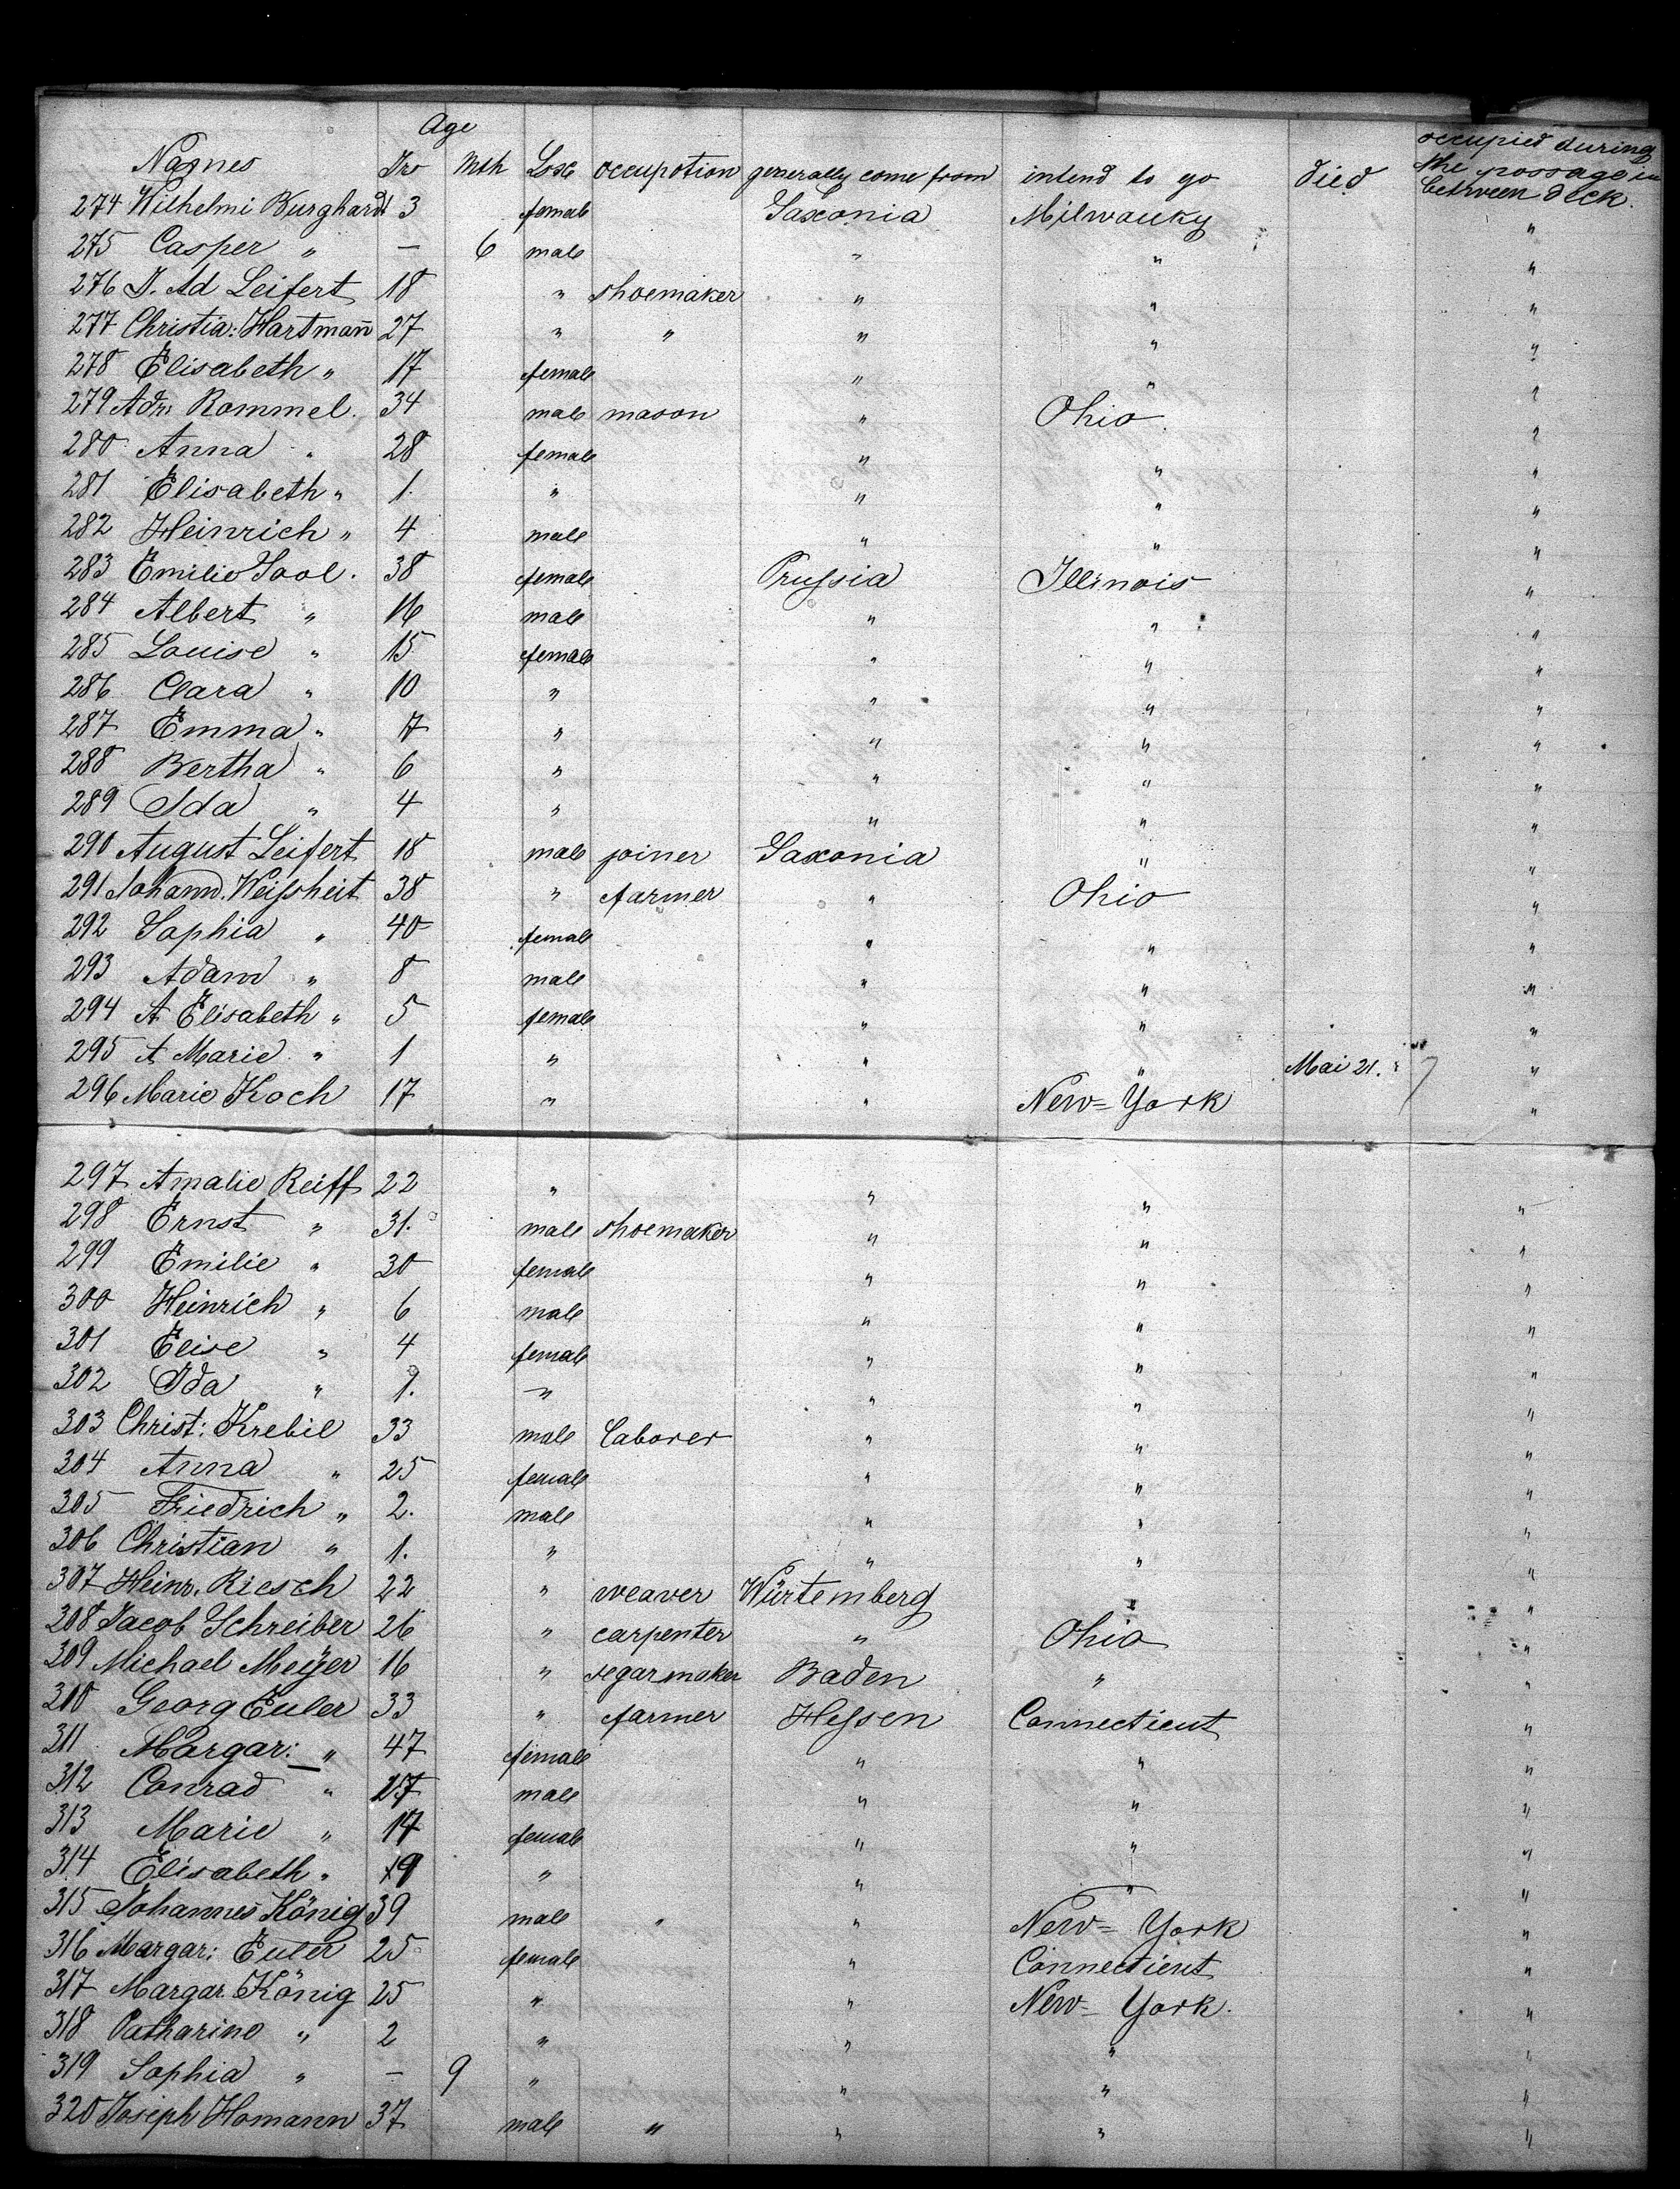 Age
occupied during
Names Irs Mth Sose occupotion generally come from intend to go died the possage in
between deck.
274 Wilhelmi Burghardt 3 female Saxonia Milwauky "
275 Casper " — 6 male " " "
276 J. Ad Leifert 18 " shoemaker " " "
277 Christia: Hartmañ 27 " " " " "
278 Elisabeth " 17 female " " "
279 Adm Rommel. 34 male mason " Ohio "
280 Anna " 28 female " " "
281 Elisabeth " 1. " " " "
282 Heinrich " 4 male " " "
283 Emilie Sool. 38 female Prußia Illinois "
284 Albert " 16 male " " "
285 Louise " 15 female " " "
286 Clara " 10 " " " "
287 Emma " 7 " " " "
288 Bertha " 6 " " " "
289 Ida " 4 " " " "
290 August Leifert 18 male joiner Saxonia " "
291 Johann. Weißheit 38 " farmer " Ohio "
292 Sophia " 40 female " " "
293 Adam " 8 male " " "
294 A Elisabeth " 5 female " " "
295 A Marie " 1 " " " Mai 21. "
296 Marie Koch 17 " " New=York "
297 Amalie Reiff 22 " " " "
298 Ernst " 31. male shoemaker " " "
299 Emilie " 30 female " " "
300 Heinrich " 6 male " " "
301 Elise " 4 female " " "
302 Ida " 1. " " " "
303 Christ: Krebil 33 male Laborer " " "
304 Anna " 25 female " " "
305 Friedrich " 2. male " " "
306 Christian " 1. " " " "
307 Heinr. Riesch 22 " weaver Würtemberg " "
308 Jacob Schreiber 26 " carpenter " Ohio "
309 Michael Meÿer 16 " segarmaker Baden " "
310 Georg Euler 33 " farmer Heßen Connecticut "
311 Margar: " 47 female " " "
312 Conrad " 17 male " " "
313 Marie " 14 female " " "
314 Elisabeth " 9 " " " "
315 Johannes König 39 male " " New=York "
316 Margar: Euler 25 female " Connecticut "
317 Margar König 25 " " New=York. "
318 Catharine " 2 " " " "
319 Sophia " — 9 " " " "
320 Joseph Homann 37 male " " " "